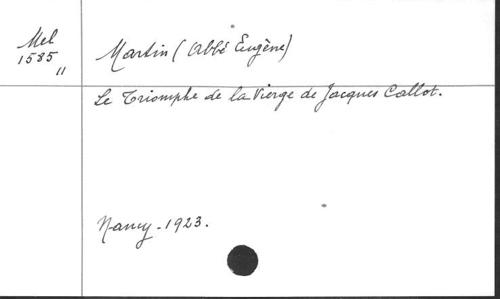 Mel
1585
"
Martin (Abbé Eugène)
Le Triomphe de la Vierge de Jacques Callot.
Nancy - 1923.